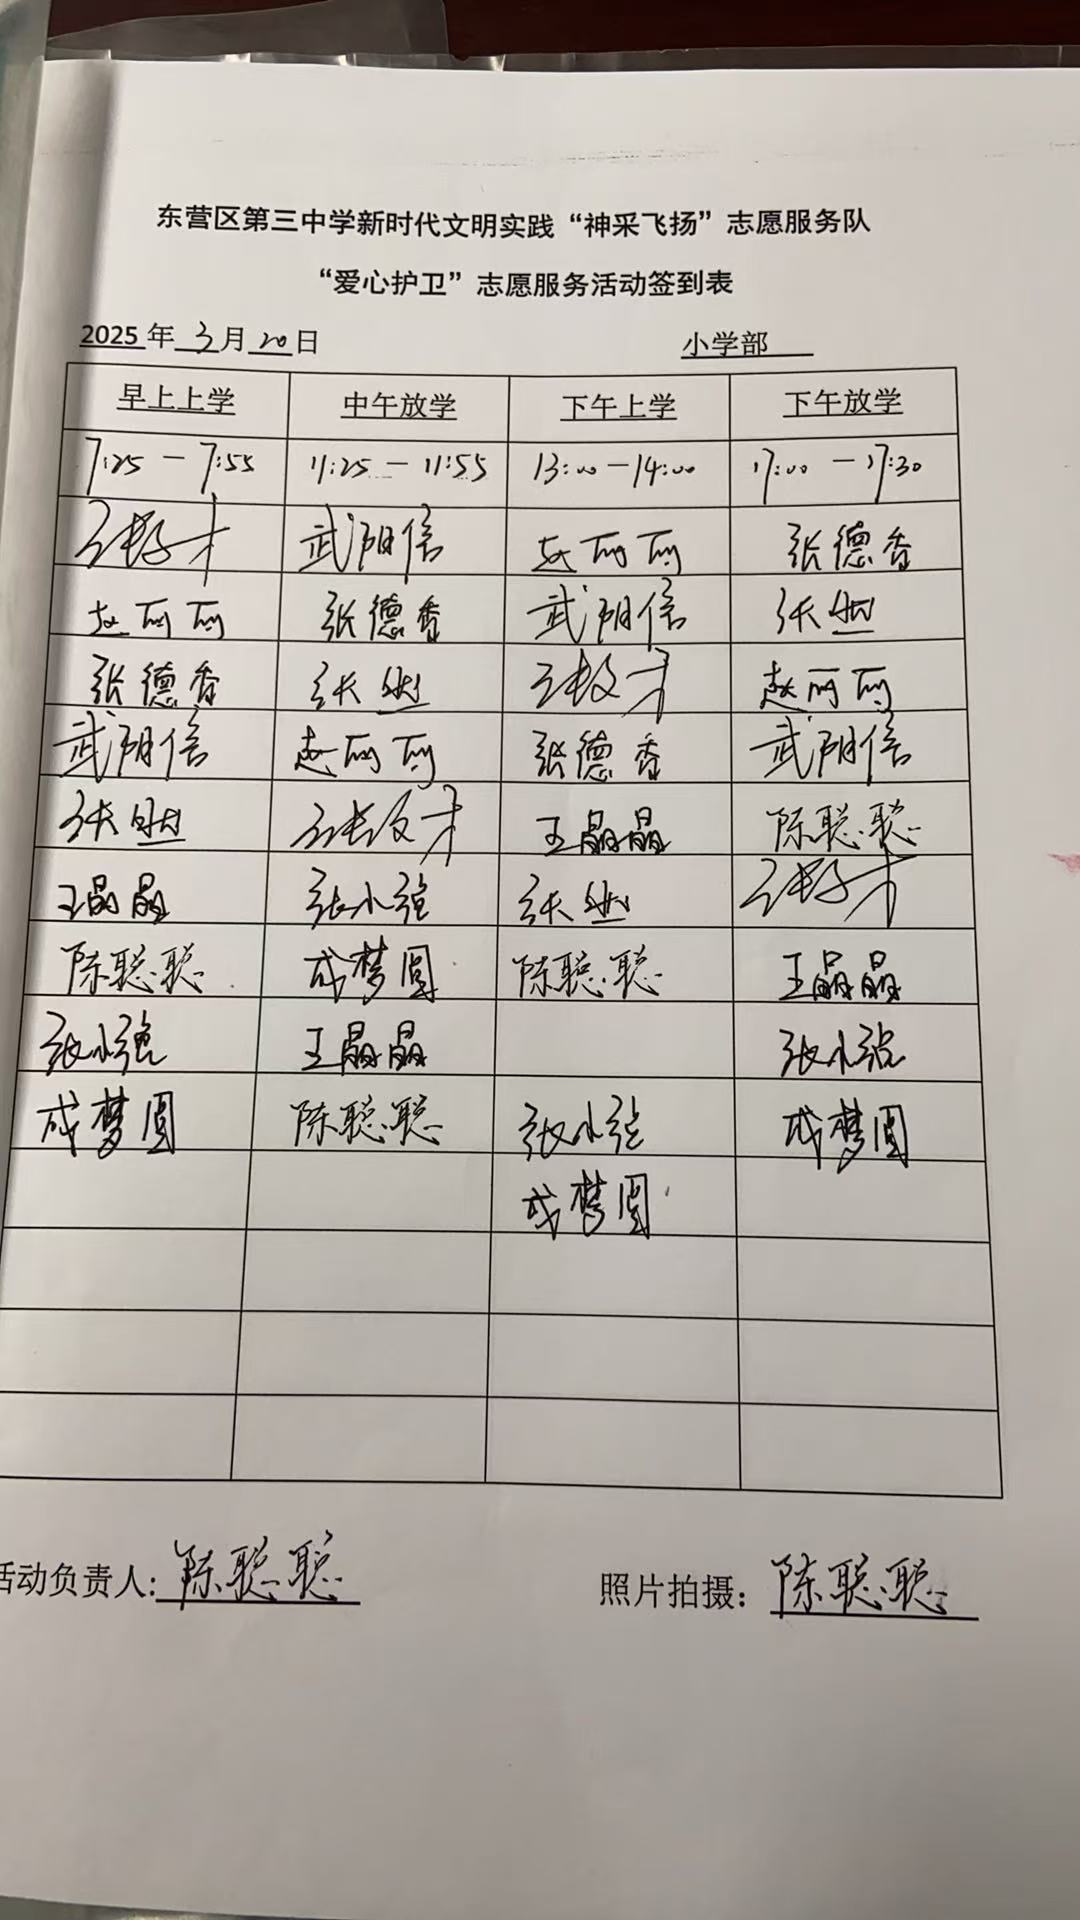 东营区第三中学新时代文明实践“神采飞扬”志愿服务队
“爱心护卫”志愿服务活动签到表
2025年 3月 20日 小学部
早上上学 中午放学 下午上学 下午放学
7:25 — 7:55 11:25 — 11:55 13:00 — 14:00 17:00 — 17:30
武阴信 赵丽丽 张德香
赵丽丽 张德香 武阴信 张
张德香 张 赵丽丽
武阴信 赵丽丽 张德香 武阴信
张 王晶晶 陈聪聪
王晶晶 张小强 张
陈聪聪 成梦圆 陈聪聪 王晶晶
张小强 王晶晶 张小强
成梦圆 陈聪聪 张小强 成梦圆
成梦圆
活动负责人:陈聪聪 照片拍摄:陈聪聪